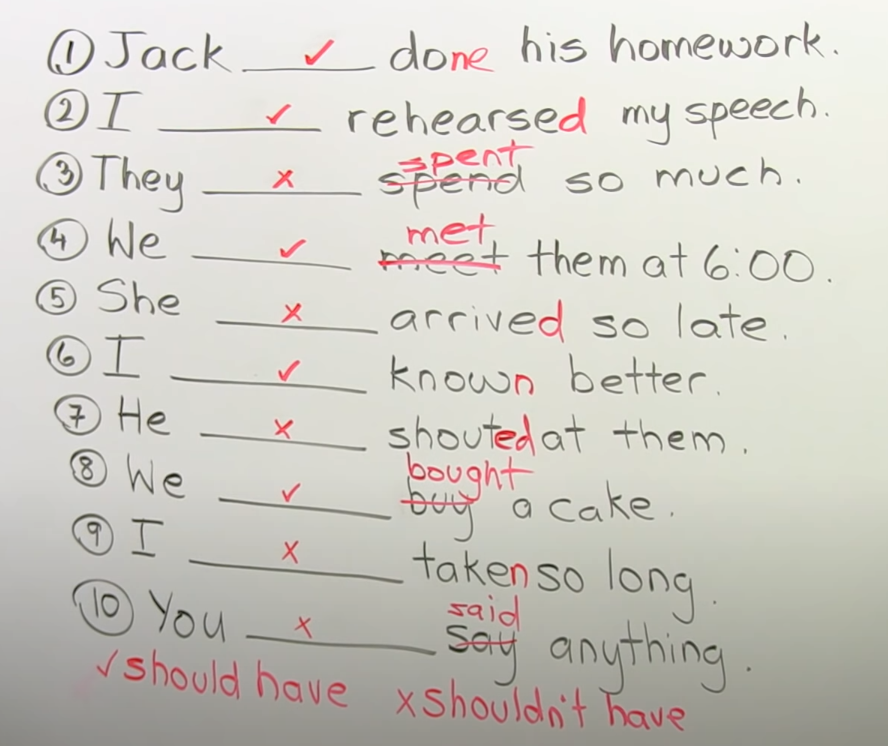 ① Jack ✓ done his homework.
② I ✓ rehearsed my speech.
spent
③ They x spend so much.
met
④ We ✓ meet them at 6:00.
⑤ She x arrived so late.
⑥ I ✓ known better.
⑦ He x shouted at them.
bought
⑧ We ✓ buy a cake.
⑨ I x taken so long.
said
⑩ You x say anything.
✓ should have x shouldn't have